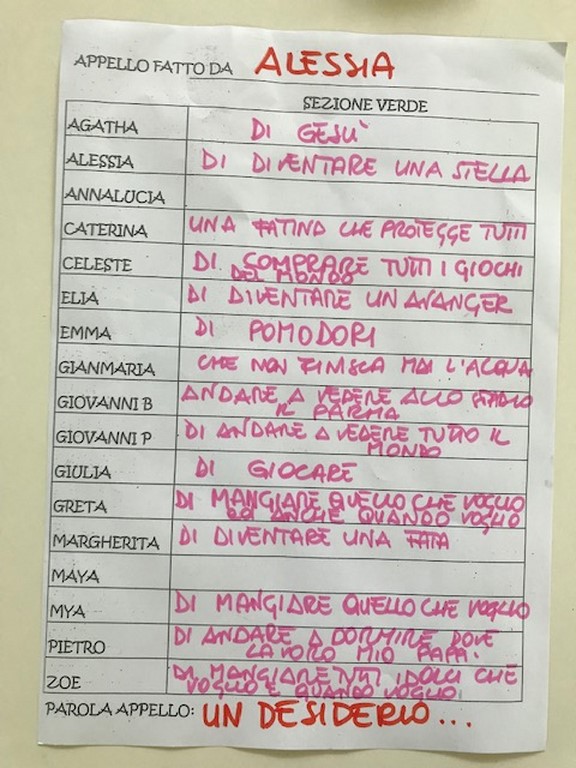 APPELLO FATTO DA ALESSIA
SEZIONE VERDE
AGATHA DI GESÙ
ALESSIA DI DIVENTARE UNA STELLA
ANNALUCIA
CATERINA UNA FATINA CHE PROTEGGE TUTTI
CELESTE DI COMPRARE TUTTI I GIOCHI
DEL MONDO
ELIA DI DIVENTARE UN AVANGER
EMMA DI POMODORI
GIANMARIA CHE NON FINISCA MAI L'ACQUA
GIOVANNI B ANDARE A VEDERE ALLO STADIO
IL PARMA
GIOVANNI P DI ANDARE A VEDERE TUTTO IL
MONDO
GIULIA DI GIOCARE
GRETA DI MANGIARE QUELLO CHE VOGLIO
ANCHE QUANDO VOGLIO
MARGHERITA DI DIVENTARE UNA FATA
MAYA
MYA DI MANGIARE QUELLO CHE VOGLIO
PIETRO DI ANDARE A DORMIRE DOVE
LAVORO MIO PAPA'
ZOE DI MANGIARE TUTTI I DOLCI CHE
VOGLIO E QUANDO VOGLIO
PAROLA APPELLO: UN DESIDERIO...